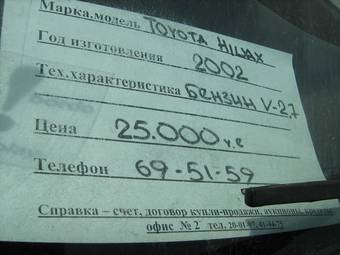 Марка.модель TOYOTA HILUX
Год изготовления 2002
Тех.характеристика БЕНЗИН V-2,7
Цена 25.000 у.е
Телефон 69-51-59
Справка – счет, договор купли-продажи, аукционы, кредиты
офис № 2 тел.